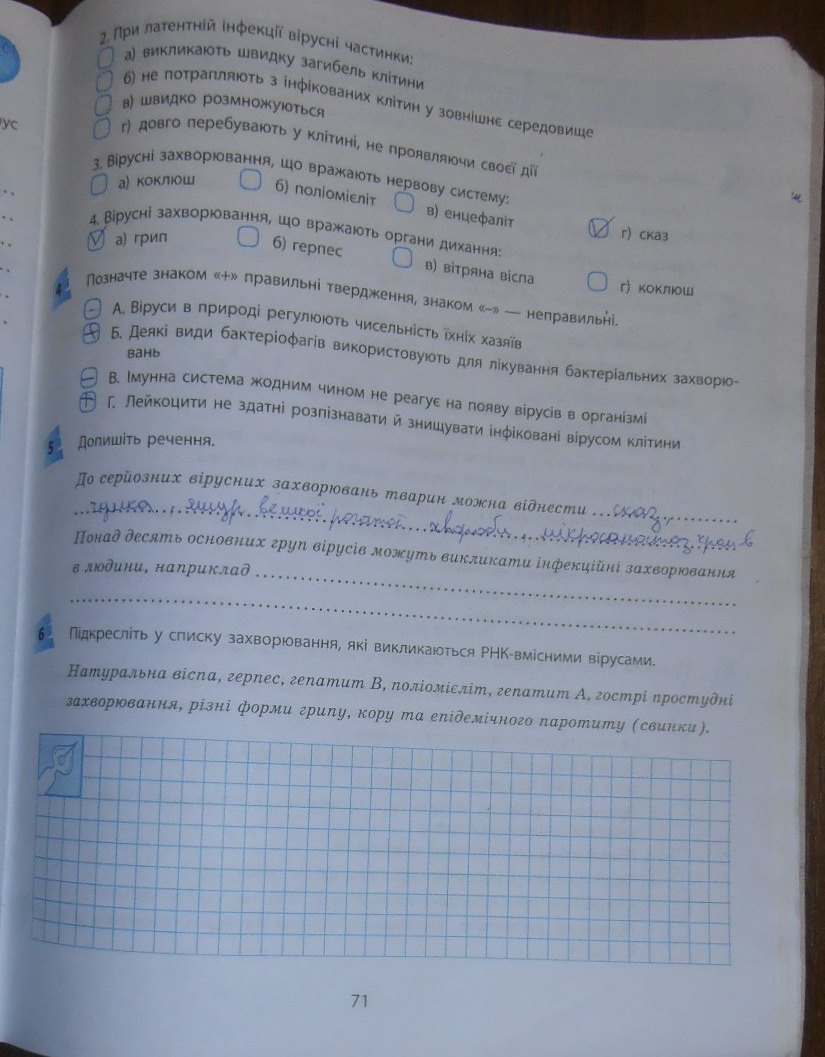 рус
2. При латентній інфекції вірусні частинки:
а) викликають швидку загибель клітини
б) не потрапляють з інфікованих клітин у зовнішнє середовище
в) швидко розмножуються
г) довго перебувають у клітині, не проявляючи своєї дії
3. Вірусні захворювання, що вражають нервову систему:
а) коклюш б) поліомієліт в) енцефаліт г) сказ
4. Вірусні захворювання, що вражають органи дихання:
а) грип б) герпес в) вітряна віспа г) коклюш
4 Позначте знаком «+» правильні твердження, знаком «–» — неправильні.
– А. Віруси в природі регулюють чисельність їхніх хазяїв
+ Б. Деякі види бактеріофагів використовують для лікування бактеріальних захворю-
вань
– В. Імунна система жодним чином не реагує на появу вірусів в організмі
+ Г. Лейкоцити не здатні розпізнавати й знищувати інфіковані вірусом клітини
5 Допишіть речення.
До серйозних вірусних захворювань тварин можна віднести ... сказ, ..........
чумка, ящур великої рогатої хвороби,
Понад десять основних груп вірусів можуть викликати інфекційні захворювання
в людини, наприклад ..........
6 Підкресліть у списку захворювання, які викликаються РНК-вмісними вірусами.
Натуральна віспа, герпес, гепатит В, поліомієліт, гепатит А, гострі простудні
захворювання, різні форми грипу, кору та епідемічного паротиту (свинки).
71